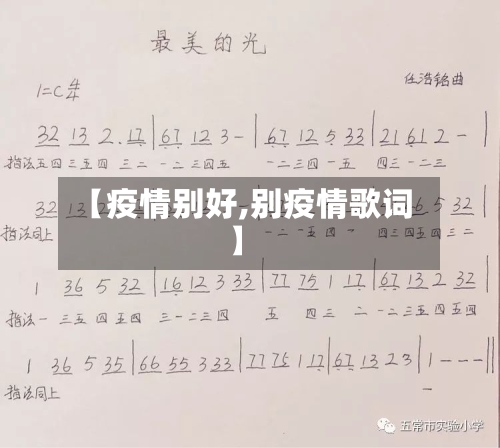 最美的光
1=C 4/4
任浩铭曲
32 13 2. 17 | 67 12 3 - | 67 12 5 33 | 21 61 2 - |
指法五四 三五四 三二 一二 三四五 一二三四 一五 四三一二三
32 13 2
6 5 32 |
【疫情别好,别疫情歌词
】
指法同上
一二 一五 四一 三四五四三二
1 36 5 32 | 16 12 3 33 | 77 75 1 17 | 67 13 2 32 |
指法一 三五四五四 三一二三四 五 四三 二 一二三五四五四
1 36 5 35 | 66 55 3 33 | 77 75 1 17 | 67 13 2 3 | 1 - - - ||
指法同上 一
五常市实验小学